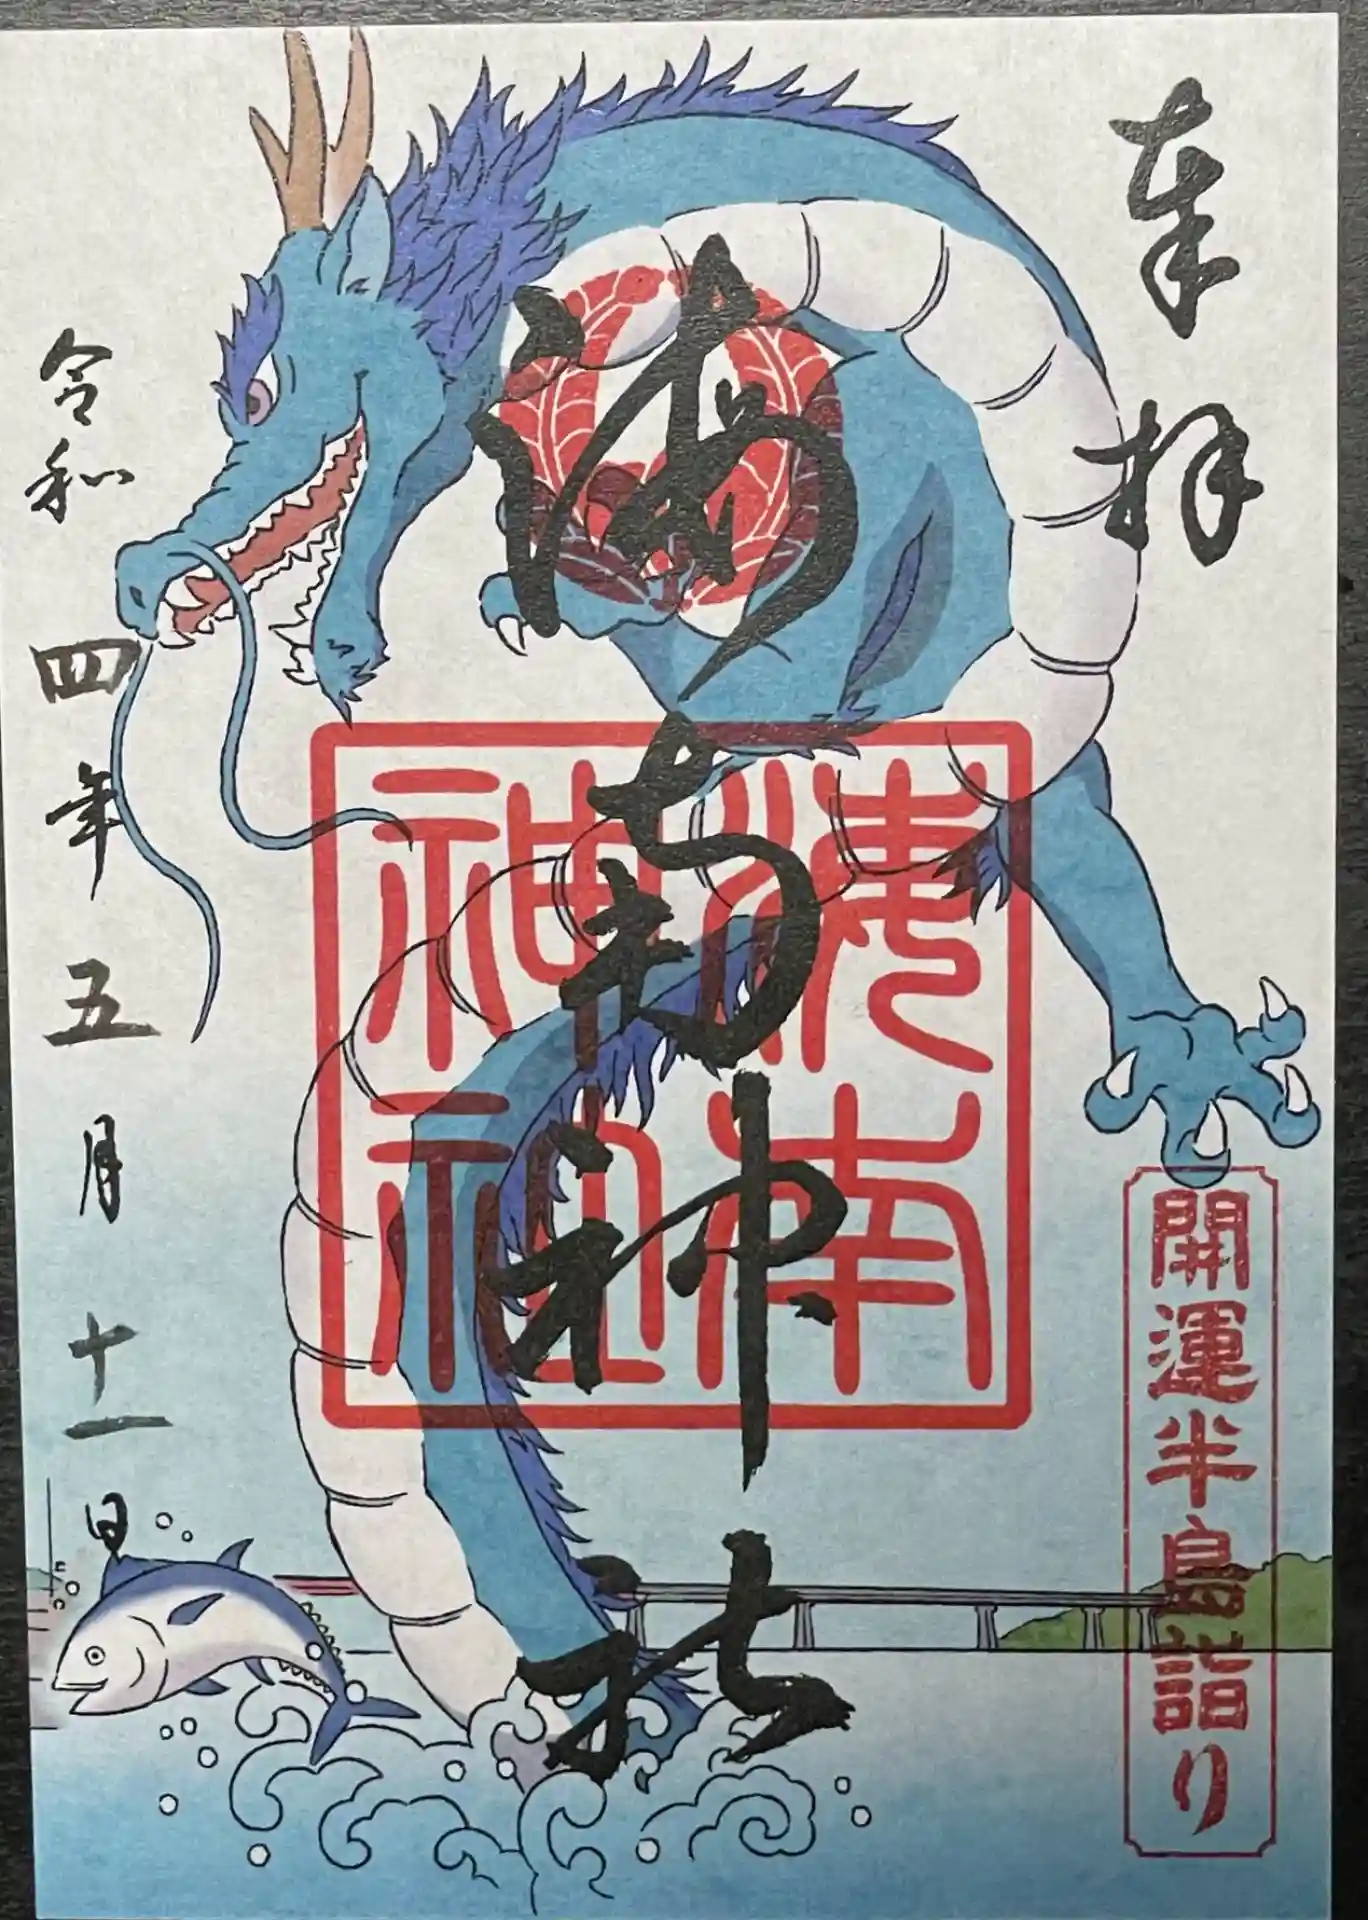 奉拝
開運半島詣り
海南神社
海南
神社
令和四年五月十一日